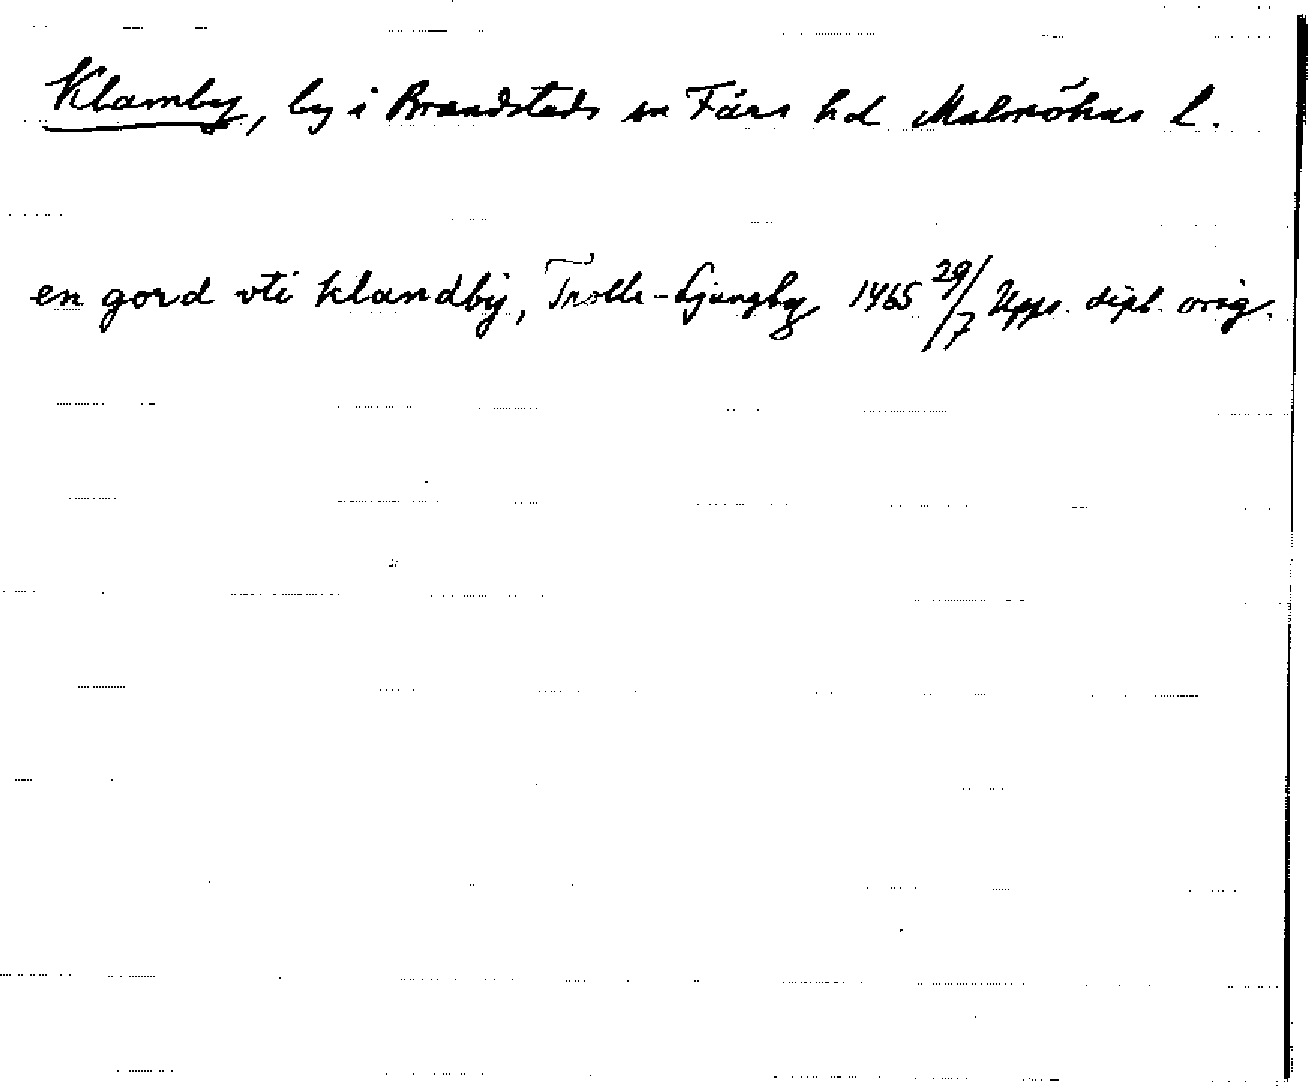 Klamby, by i Brandstads sn Färs hd Malmöhus l.
en gord vti klandbij, Trolle-Ljungby 1465 29/7 Upps. dipl. orig.